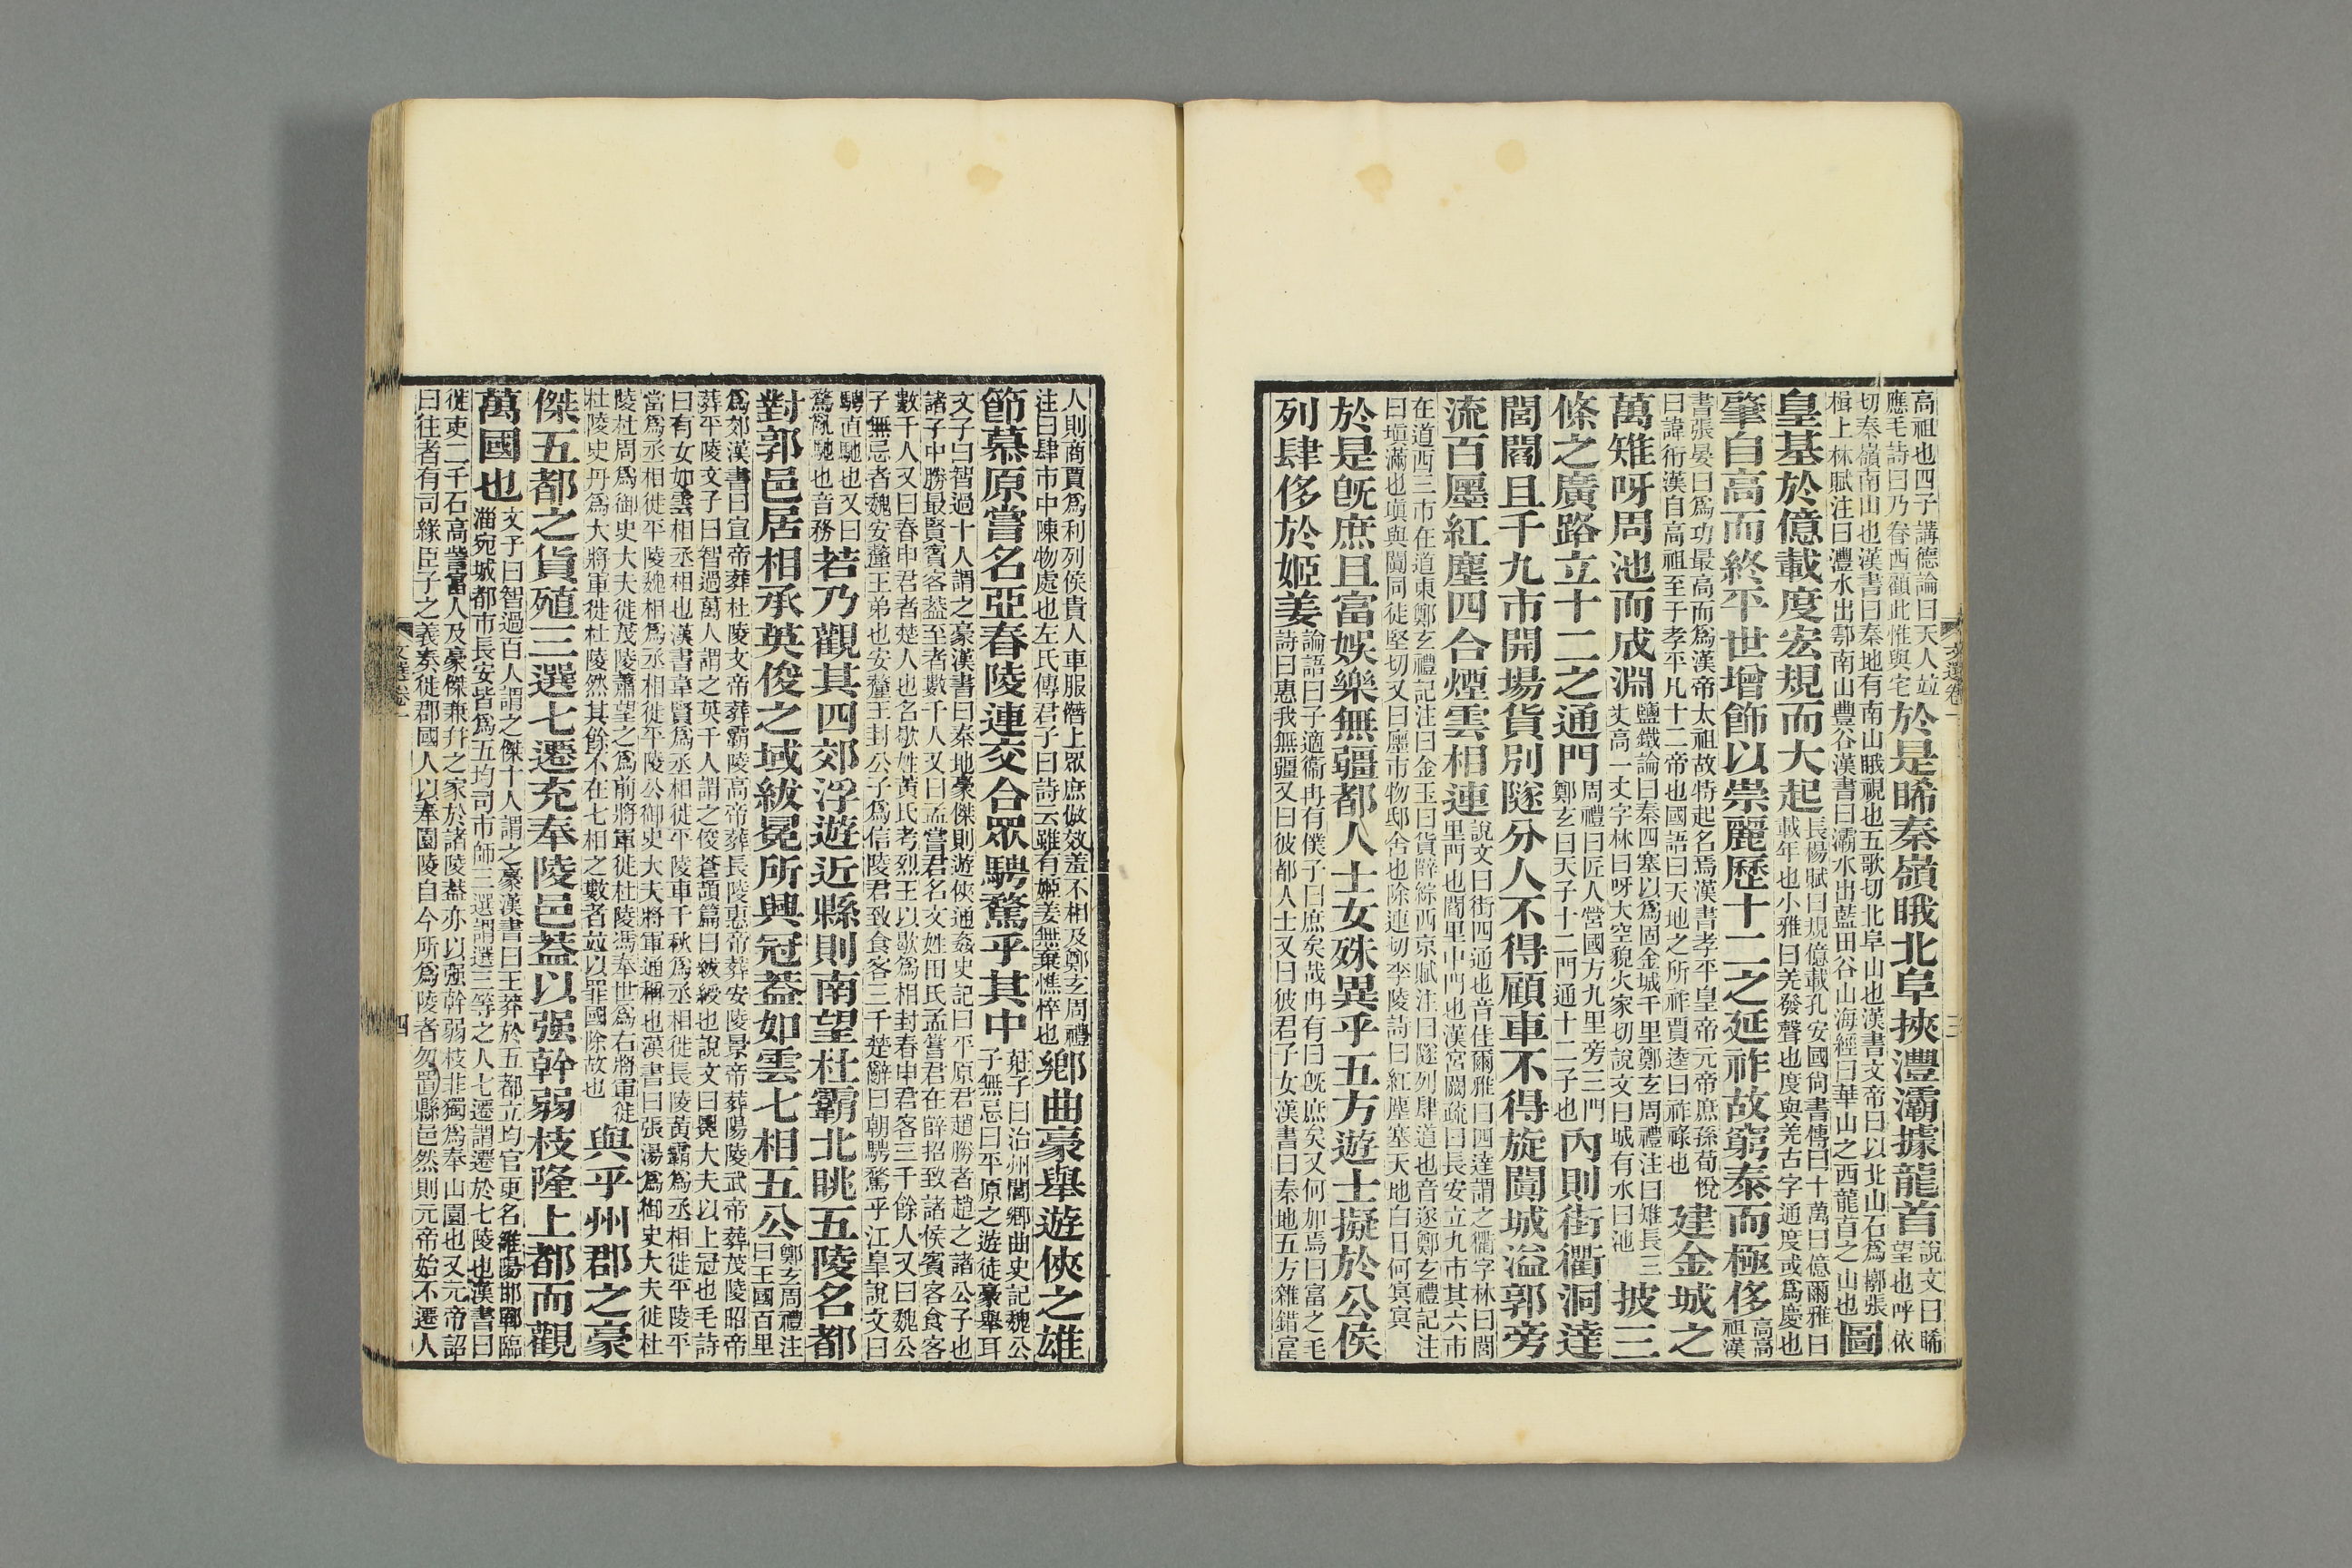 高祖也四子講德論曰天人竝
應毛詩曰乃眷西顧此惟與宅
於是睎秦嶺睋北阜挾灃灞據龍首
說文曰睎
望也呼依
切秦嶺南山也漢書曰秦地有南山睋視也五歌切北阜山也漢書文帝曰以北山石爲槨張
楫上林賦注曰灃水出鄠南山豐谷漢書曰灞水出藍田谷山海經曰華山之西龍首之山也
圖
皇基於億載度宏規而大起
長楊賦曰規億載孔安國尙書傳曰十萬曰億爾雅曰
載年也小雅曰羌發聲也度與羌古字通度或爲慶也
肇自高而終平世增飾以崇麗歷十二之延祚故窮泰而極侈
高高
祖漢
書張晏曰爲功最高而爲漢帝太祖故特起名焉漢書孝平皇帝元帝庶孫荀悅
曰諱衎漢自高祖至于孝平凡十二帝也國語曰天地之所祚賈逵曰祚祿也
建金城之
萬雉呀周池而成淵
鹽鐵論曰秦四塞以爲固金城千里鄭玄周禮注曰雉長三
丈高一丈字林曰呀大空貌火家切說文曰城有水曰池
披三
條之廣路立十二之通門
周禮曰匠人營國方九里旁三門
鄭玄曰天子十二門通十二子也
內則街衢洞達
閭閻且千九市開場貨別隧分人不得顧車不得旋闐城溢郭旁
流百廛紅塵四合煙雲相連
說文曰街四通也音佳爾雅曰四達謂之衢字林曰閭
里門也閻里中門也漢宮闕疏曰長安立九市其六市
在道西三市在道東鄭玄禮記注曰金玉曰貨薛綜西京賦注曰隧列肆道也音遂鄭玄禮記注
曰塡滿也塡與闐同徒堅切又曰廛市物邸舍也除連切李陵詩曰紅塵塞天地白日何冥冥
於是旣庶且富娛樂無疆都人士女殊異乎五方遊士擬於公侯
列肆侈於姬姜
論語曰子適衞冉有僕子曰庶矣哉冉有曰旣庶矣又何加焉曰富之毛
詩曰惠我無疆又曰彼都人士又曰彼君子女漢書曰秦地五方雜錯富
文選卷一
三
人則商賈爲利列侯貴人車服僭上眾庶倣效羞不相及鄭玄周禮
注曰肆市中陳物處也左氏傳君子曰詩云雖有姬姜無棄憔悴也
鄉曲豪舉遊俠之雄
節慕原嘗名亞春陵連交合眾騁騖乎其中
莊子曰治州閭鄉曲史記魏公
子無忌曰平原之遊徒豪舉耳
文子曰智過十人謂之豪漢書曰秦地豪傑則遊俠通姦史記曰平原君趙勝者趙之諸公子也
諸子中勝最賢賓客葢至者數千人又曰孟嘗君名文姓田氏孟嘗君在薛招致諸侯賓客食客
數千人又曰春申君者楚人也名歇姓黃氏考烈王以歇爲相封春申君客三千餘人又曰魏公
子無忌者魏安釐王弟也安釐王封公子爲信陵君致食客三千楚辭曰朝騁騖乎江皐說文曰
騁直馳也又曰
騖亂馳也音務
若乃觀其四郊浮遊近縣則南望杜霸北眺五陵名都
對郭邑居相承英俊之域紱冕所興冠葢如雲七相五公
鄭玄周禮注
曰王國百里
爲郊漢書曰宣帝葬杜陵文帝葬霸陵高帝葬長陵惠帝葬安陵景帝葬陽陵武帝葬茂陵昭帝
葬平陵文子曰智過萬人謂之英千人謂之俊蒼頡篇曰紱綬也說文曰冕大夫以上冠也毛詩
曰有女如雲相丞相也漢書韋賢爲丞相徙平陵車千秋爲丞相徙長陵黃霸爲丞相徙平陵平
當爲丞相徙平陵魏相爲丞相徙平陵公御史大夫將軍通稱也漢書曰張湯爲御史大夫徙杜
陵杜周爲御史大夫徙茂陵蕭望之爲前將軍徙杜陵馮奉世爲右將軍徙
杜陵史丹爲大將軍徙杜陵然其餘不在七相之數者竝以罪國除故也
與乎州郡之豪
傑五都之貨殖三選七遷充奉陵邑葢以强幹弱枝隆上都而觀
萬國也
文子曰智過百人謂之傑十人謂之豪漢書曰王莽於五都立均官更名雒陽邯鄲臨
淄宛城都市長安皆爲五均司市師三選謂選三等之人七遷謂遷於七陵也漢書曰
徙吏二千石高訾富人及豪傑兼幷之家於諸陵葢亦以强幹弱枝非獨爲奉山園也又元帝詔
曰往者有司緣臣子之義奏徙郡國人以奉園陵自今所爲陵者勿置縣邑然則元帝始不遷人
文選卷一
四